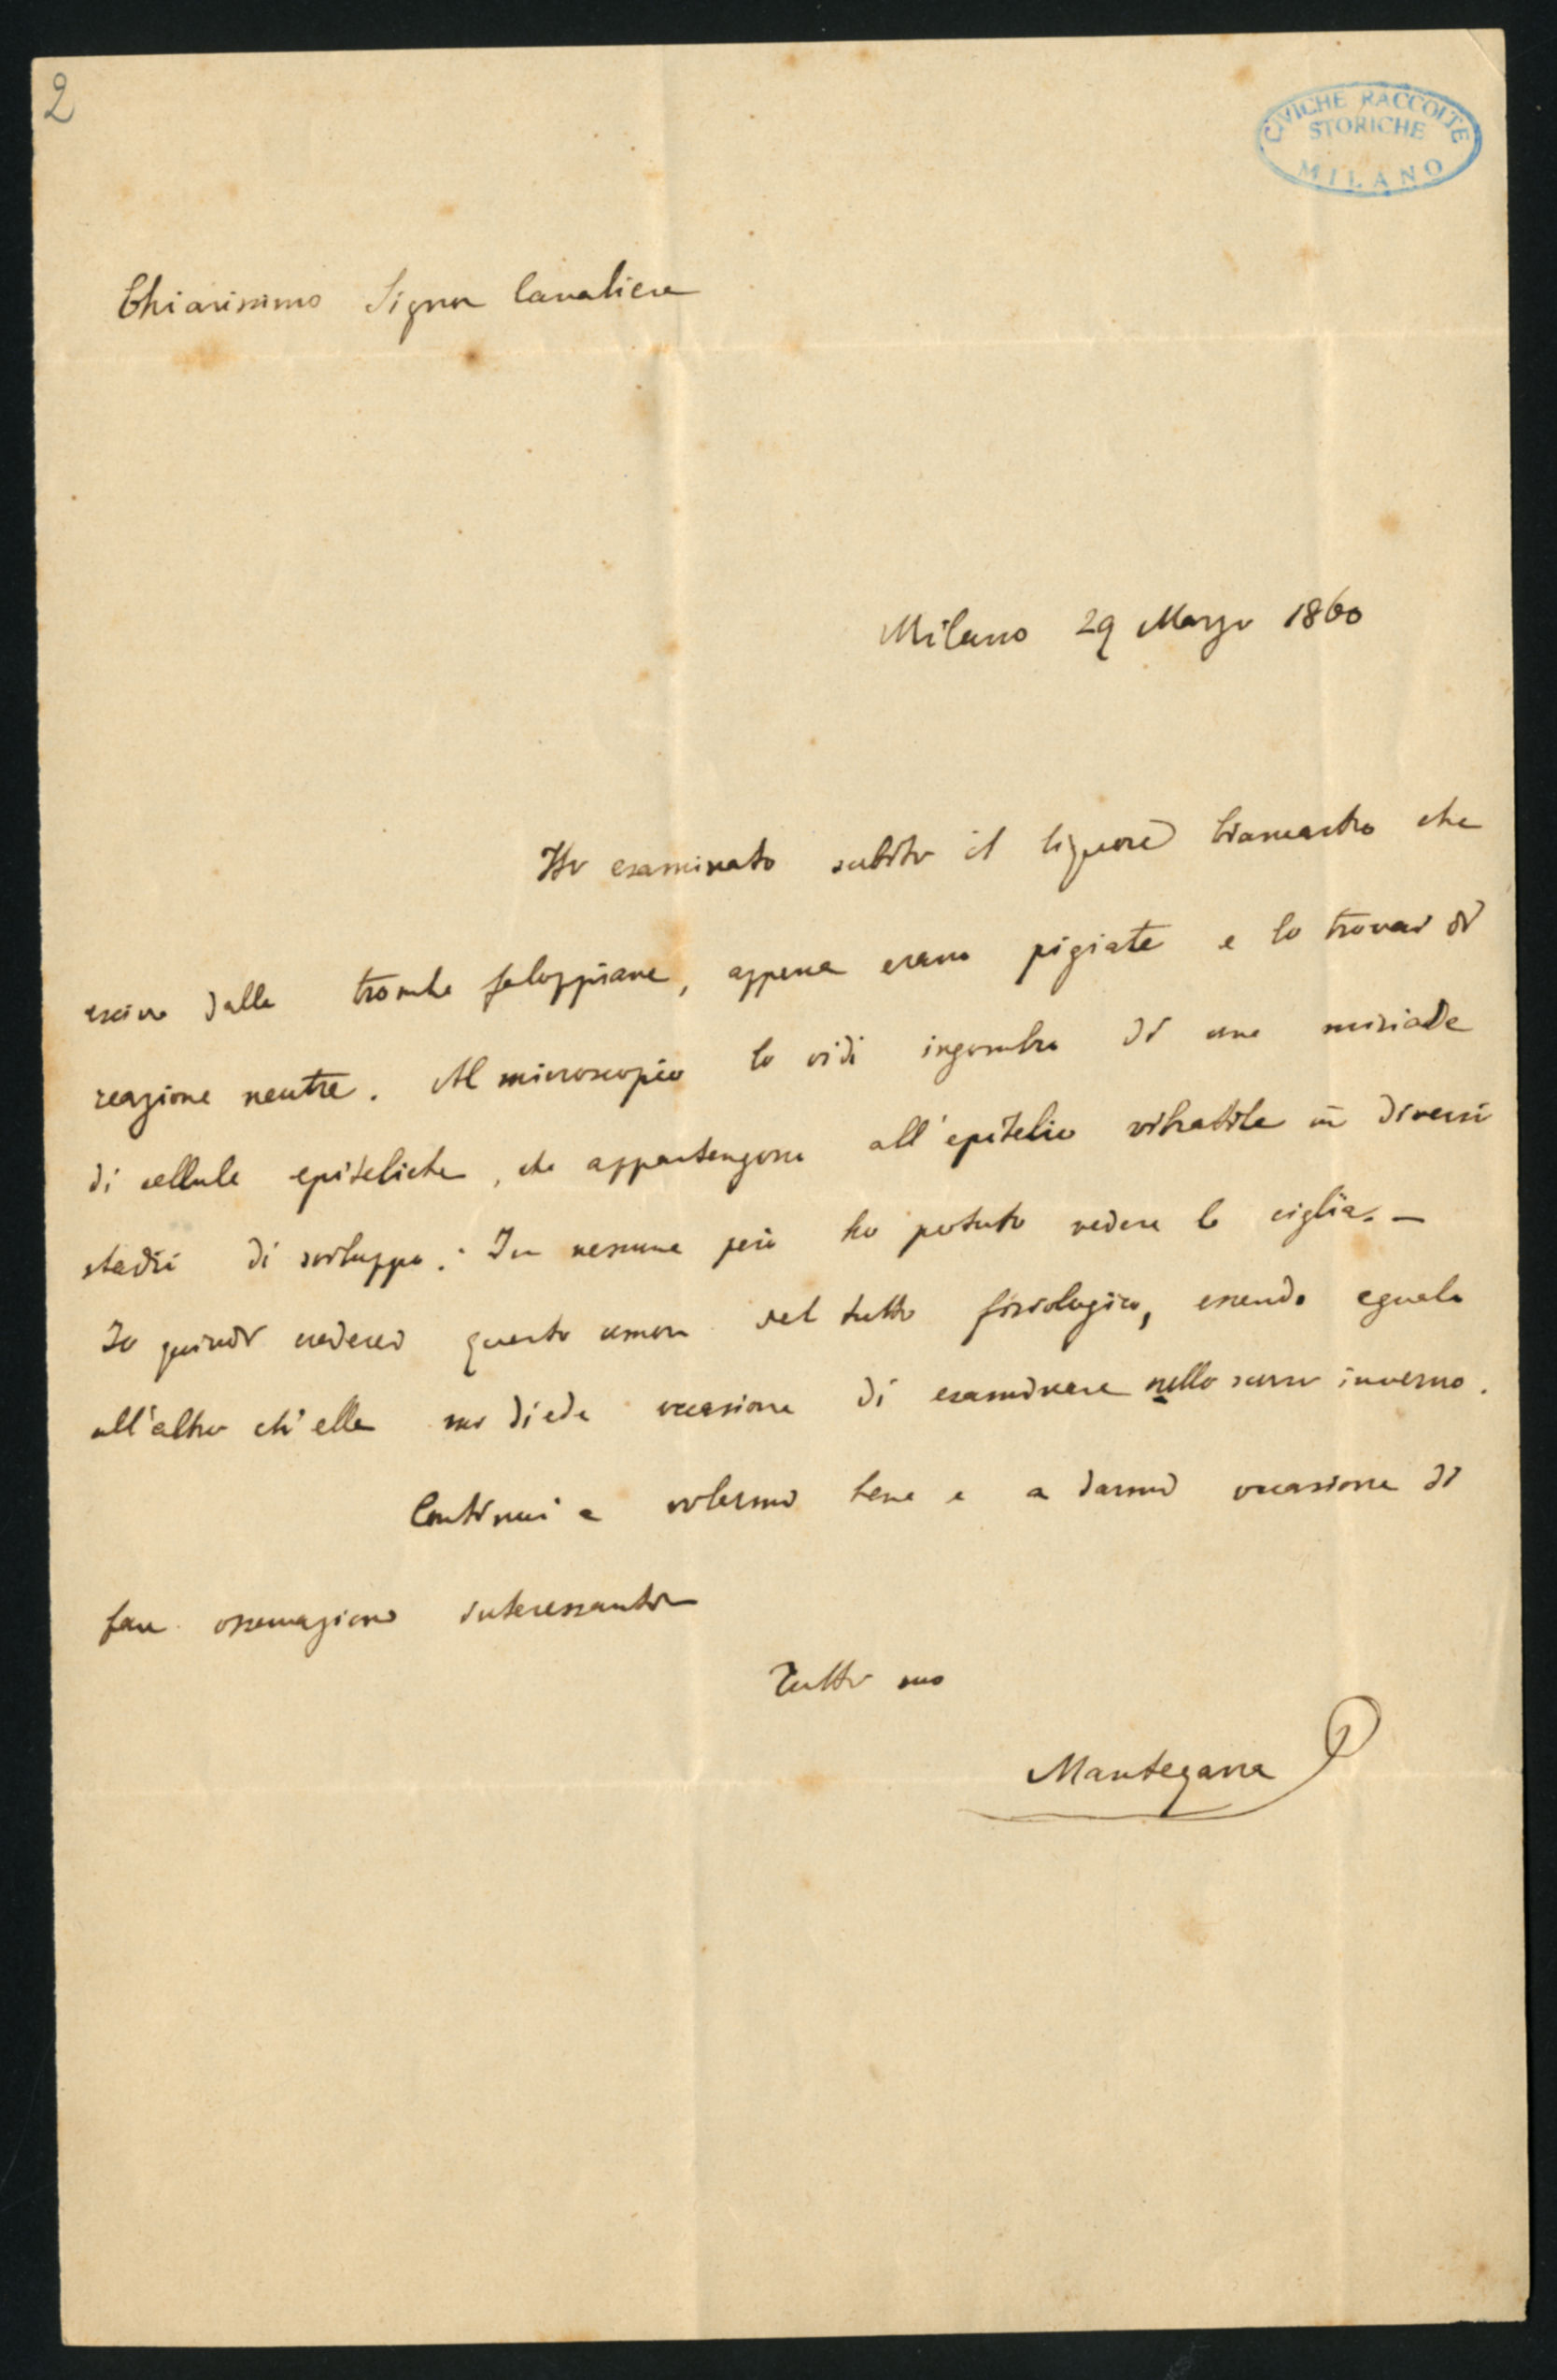 2
CIVICHE RACCOLTE
STORICHE
MILANO
Chiarissimo Signor Cavaliere
Milano 29 Marzo 1860
Ho esaminato subito il liquore biancastro che
esciva dalle trombe faloppiane, appena erano pigiate e lo trovai di
reazione neutra. Al microscopio lo vidi ingombro di una miriade
di cellule epiteliche, che appartengono all'epitelio vibratile in diversi
stadii di sviluppo. In nessuna però ho potuto vedere le ciglia. —
Io quindi crederei questo umore del tutto fisiologico, essendo eguale
all'altro ch'ella mi diede occasione di esaminare nello scorso inverno.
Continui a volermi bene e a darmi occasione di
fare osservazioni interessanti
Tutto suo
Mantegazza